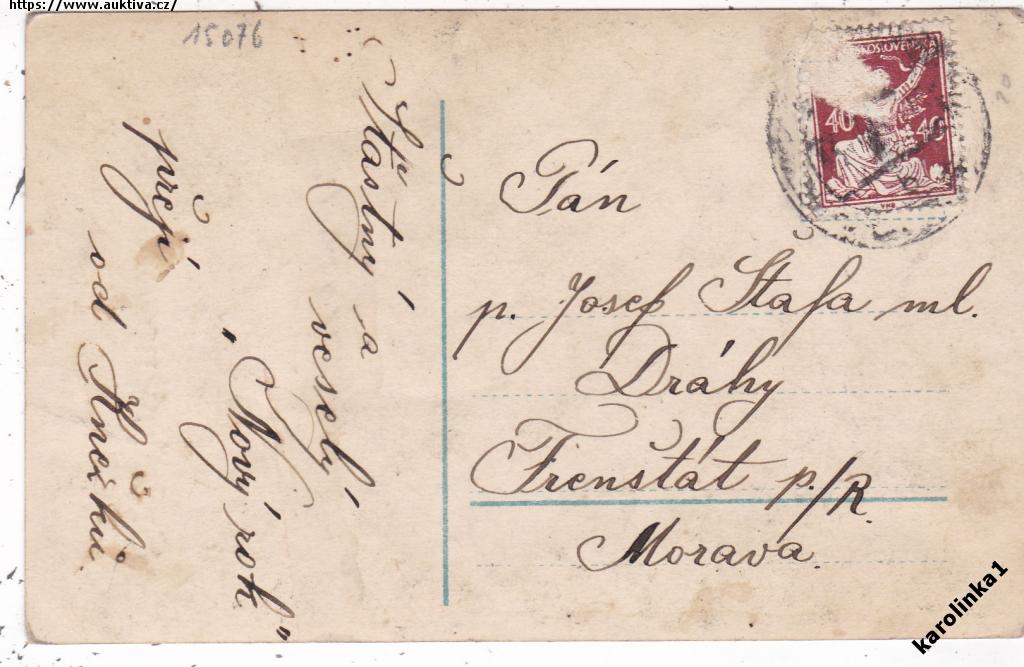 https://www.auktiva.cz/
15076
Šťastný a
veselý
„Nový rok"
přejí
od Kneřků
ČESKOSLOVENSKÁ
40 40
VHB
20
Pán
p. Josef Štafa ml.
Dráhy
Frenštát p/R.
Morava.
karolinka1